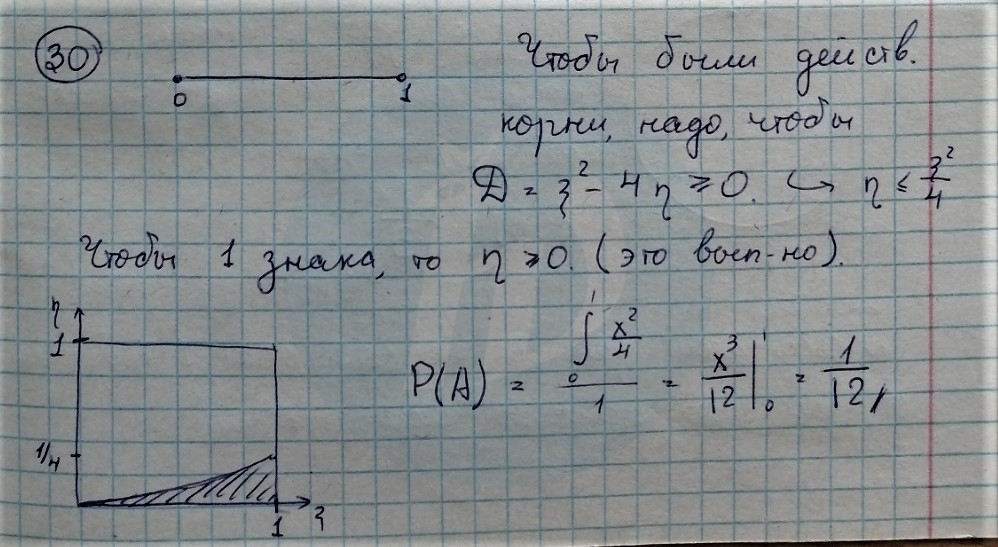 30
Чтобы были действ.
0 1
корни, надо, чтобы
D = ξ² - 4η ≥ 0. ↪ η ≤ ξ²/4
Чтобы 1 знака, то η ≥ 0. (это вып-но).
η
1
P(A) = (∫₀¹ x²/4)/1 = x³/12 |₀¹ = 1/12
1/4
1 ξ